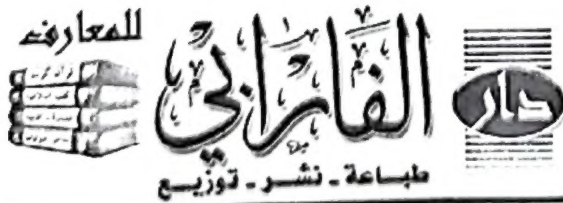 دار الفارابي للمعارف
طباعة - نشر - توزيع